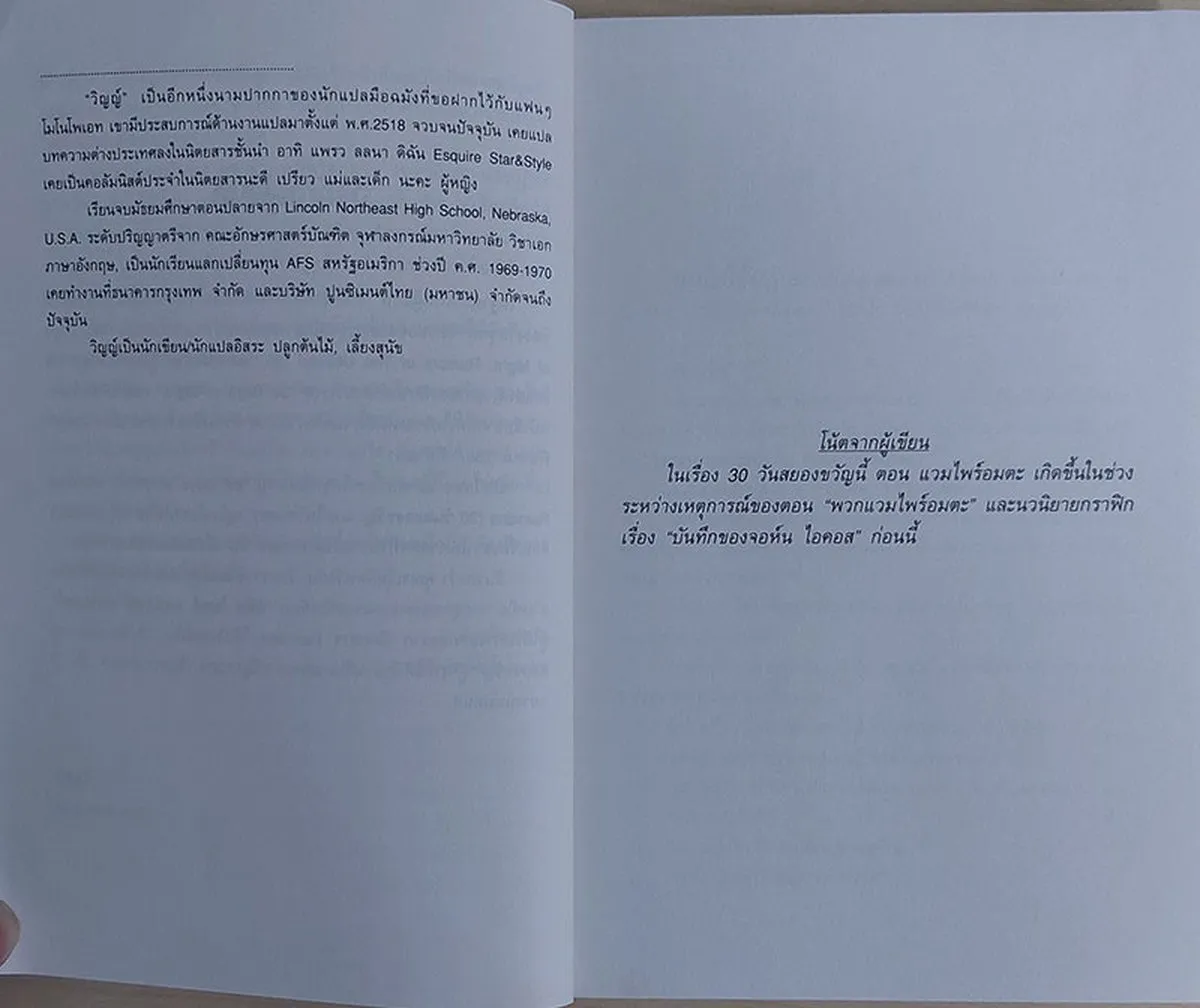 "วิญญ์" เป็นอีกหนึ่งนามปากกาของนักแปลมือฉมังที่ขอฝากไว้กับแฟนๆ
โมโนโพเอท เขามีประสบการณ์ด้านงานแปลมาตั้งแต่ พ.ศ.2518 จวบจนปัจจุบัน เคยแปล
บทความต่างประเทศลงในนิตยสารชั้นนำ อาทิ แพรว ลลนา ดิฉัน Esquire Star&Style
เคยเป็นคอลัมนิสต์ประจำในนิตยสารนะดี เปรียว แม่และเด็ก นะคะ ผู้หญิง
เรียนจบมัธยมศึกษาตอนปลายจาก Lincoln Northeast High School, Nebraska,
U.S.A. ระดับปริญญาตรีจาก คณะอักษรศาสตร์บัณฑิต จุฬาลงกรณ์มหาวิทยาลัย วิชาเอก
ภาษาอังกฤษ, เป็นนักเรียนแลกเปลี่ยนทุน AFS สหรัฐอเมริกา ช่วงปี ค.ศ. 1969-1970
เคยทำงานที่ธนาคารกรุงเทพ จำกัด และบริษัท ปูนซิเมนต์ไทย (มหาชน) จำกัดจนถึง
ปัจจุบัน
วิญญ์เป็นนักเขียน/นักแปลอิสระ ปลูกต้นไม้, เลี้ยงสุนัข
โน้ตจากผู้เขียน
ในเรื่อง 30 วันสยองขวัญนี้ ตอน แวมไพร์อมตะ เกิดขึ้นในช่วง
ระหว่างเหตุการณ์ของตอน "พวกแวมไพร์อมตะ" และนวนิยายกราฟิก
เรื่อง "บันทึกของจอห์น ไอคอส" ก่อนนี้